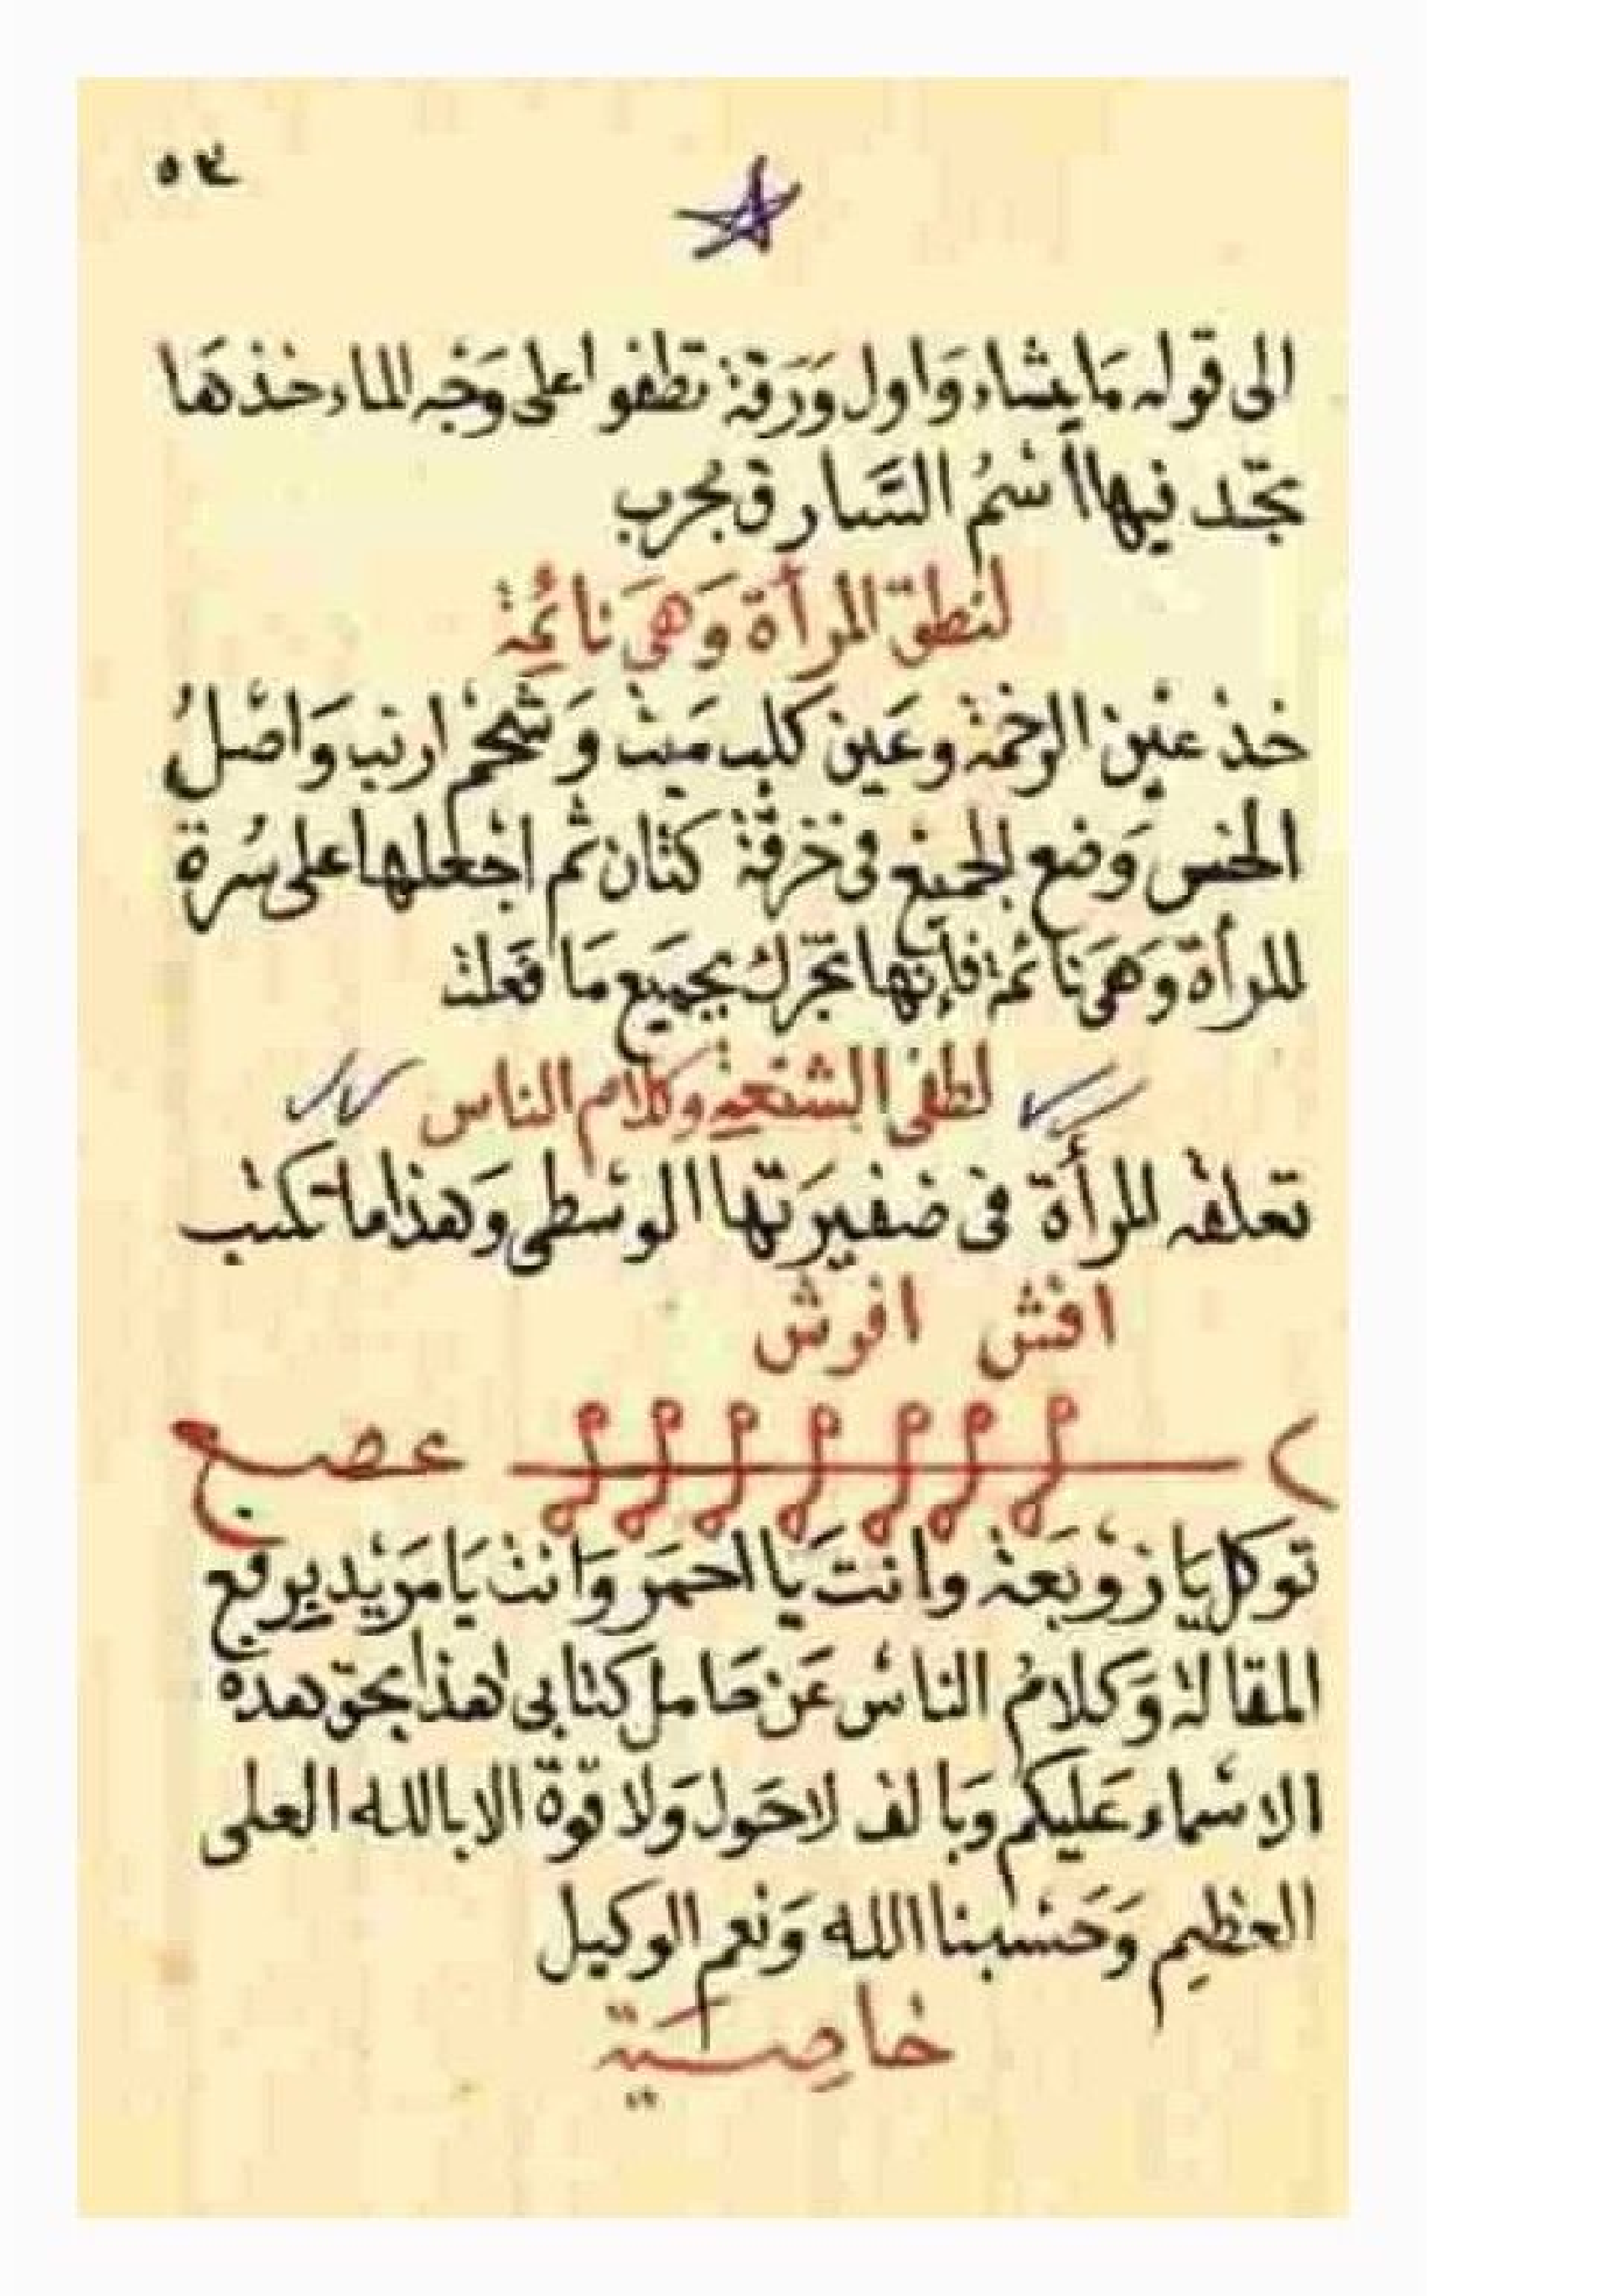 ٥٣
الى قوله مَا يشاء وَاول وَرَقة تطفوا على وَجه الماء خذهَا
تجد فيها اسْمُ السَّارق مجرب
لنطق المرأة وَهى نَائمة
خذ عين الرخمة وعَين كلب مَيت وَشحم ارنب وَاصْلُ
الخس وَضع الجميع فى خرقة كتان ثم اجْعلها على سُرة
المرأة وَهى نَائمة فإنها تخبرك بجميع مَا فعلت
لطفى الشنعة وكلام الناس
تعلقه المرأة فى ضفيرَتها الوسْطى وَهذا ما تكتب
افش افوش
عصبح
توكل يَا زوبَعة وانت يَا احمَر وَانت يَا مَرْيد برفع
المقالة وَكلامُ الناسْ عَن حَامل كتابى هذا بحق هذه
الاسْماء عَليكم وَبالف لاحَول وَلا قوة الا بالله العلى
العظيم وَحَسْبنا الله وَنعم الوكيل
خاصِيَة